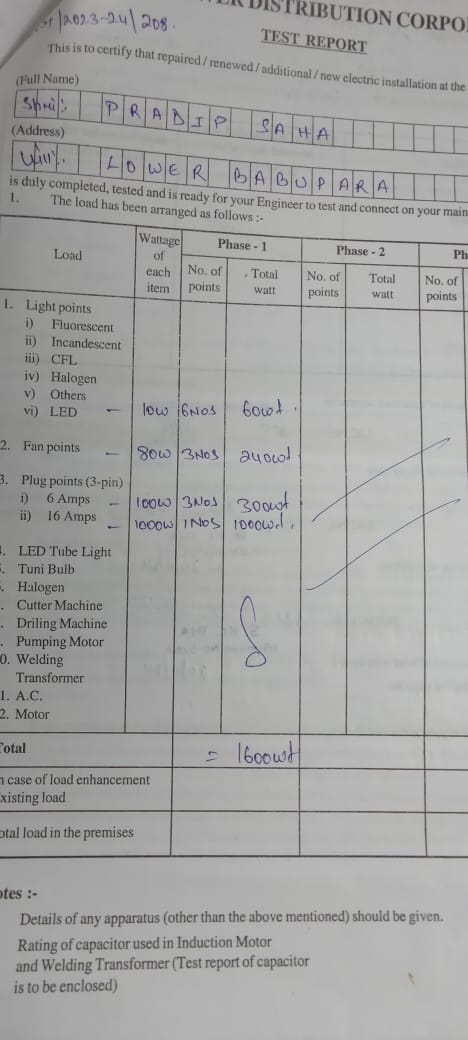 /2023-24/208.
DISTRIBUTION CORPO
TEST REPORT
This is to certify that repaired / renewed / additional / new electric installation at the
(Full Name)
Shri: PRADIP SAHA
(Address)
Vill:. LOWER BABUPARA
is duly completed, tested and is ready for your Engineer to test and connect on your main
1. The load has been arranged as follows :-
Load Wattage of each item Phase - 1 Phase - 2 Ph
No. of points Total watt No. of points Total watt No. of points
1. Light points
i) Fluorescent
ii) Incandescent
iii) CFL
iv) Halogen
v) Others
vi) LED – 10W 6NOS 60wt.
2. Fan points – 80W 3NOS 240wt
3. Plug points (3-pin)
i) 6 Amps – 100W 3NOS 300wt
ii) 16 Amps – 1000W 1NOS 1000wt.
. LED Tube Light
. Tuni Bulb
. Halogen
. Cutter Machine
. Driling Machine
. Pumping Motor
0. Welding
Transformer
1. A.C.
2. Motor
Total = 1600wt
n case of load enhancement
existing load
otal load in the premises
otes :-
Details of any apparatus (other than the above mentioned) should be given.
Rating of capacitor used in Induction Motor
and Welding Transformer (Test report of capacitor
is to be enclosed)